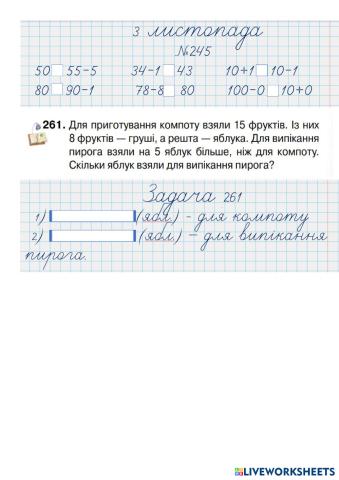 3 листопада
№245
50 55-5 34-1 43 10+1 10-1
80 90-1 78-8 80 100-0 10+0
261. Для приготування компоту взяли 15 фруктів. Із них
8 фруктів — груші, а решта — яблука. Для випікання
пирога взяли на 5 яблук більше, ніж для компоту.
Скільки яблук взяли для випікання пирога?
Задача 261
1) (ябл.) - для компоту
2) (ябл.) - для випікання
пирога.
LIVEWORKSHEETS